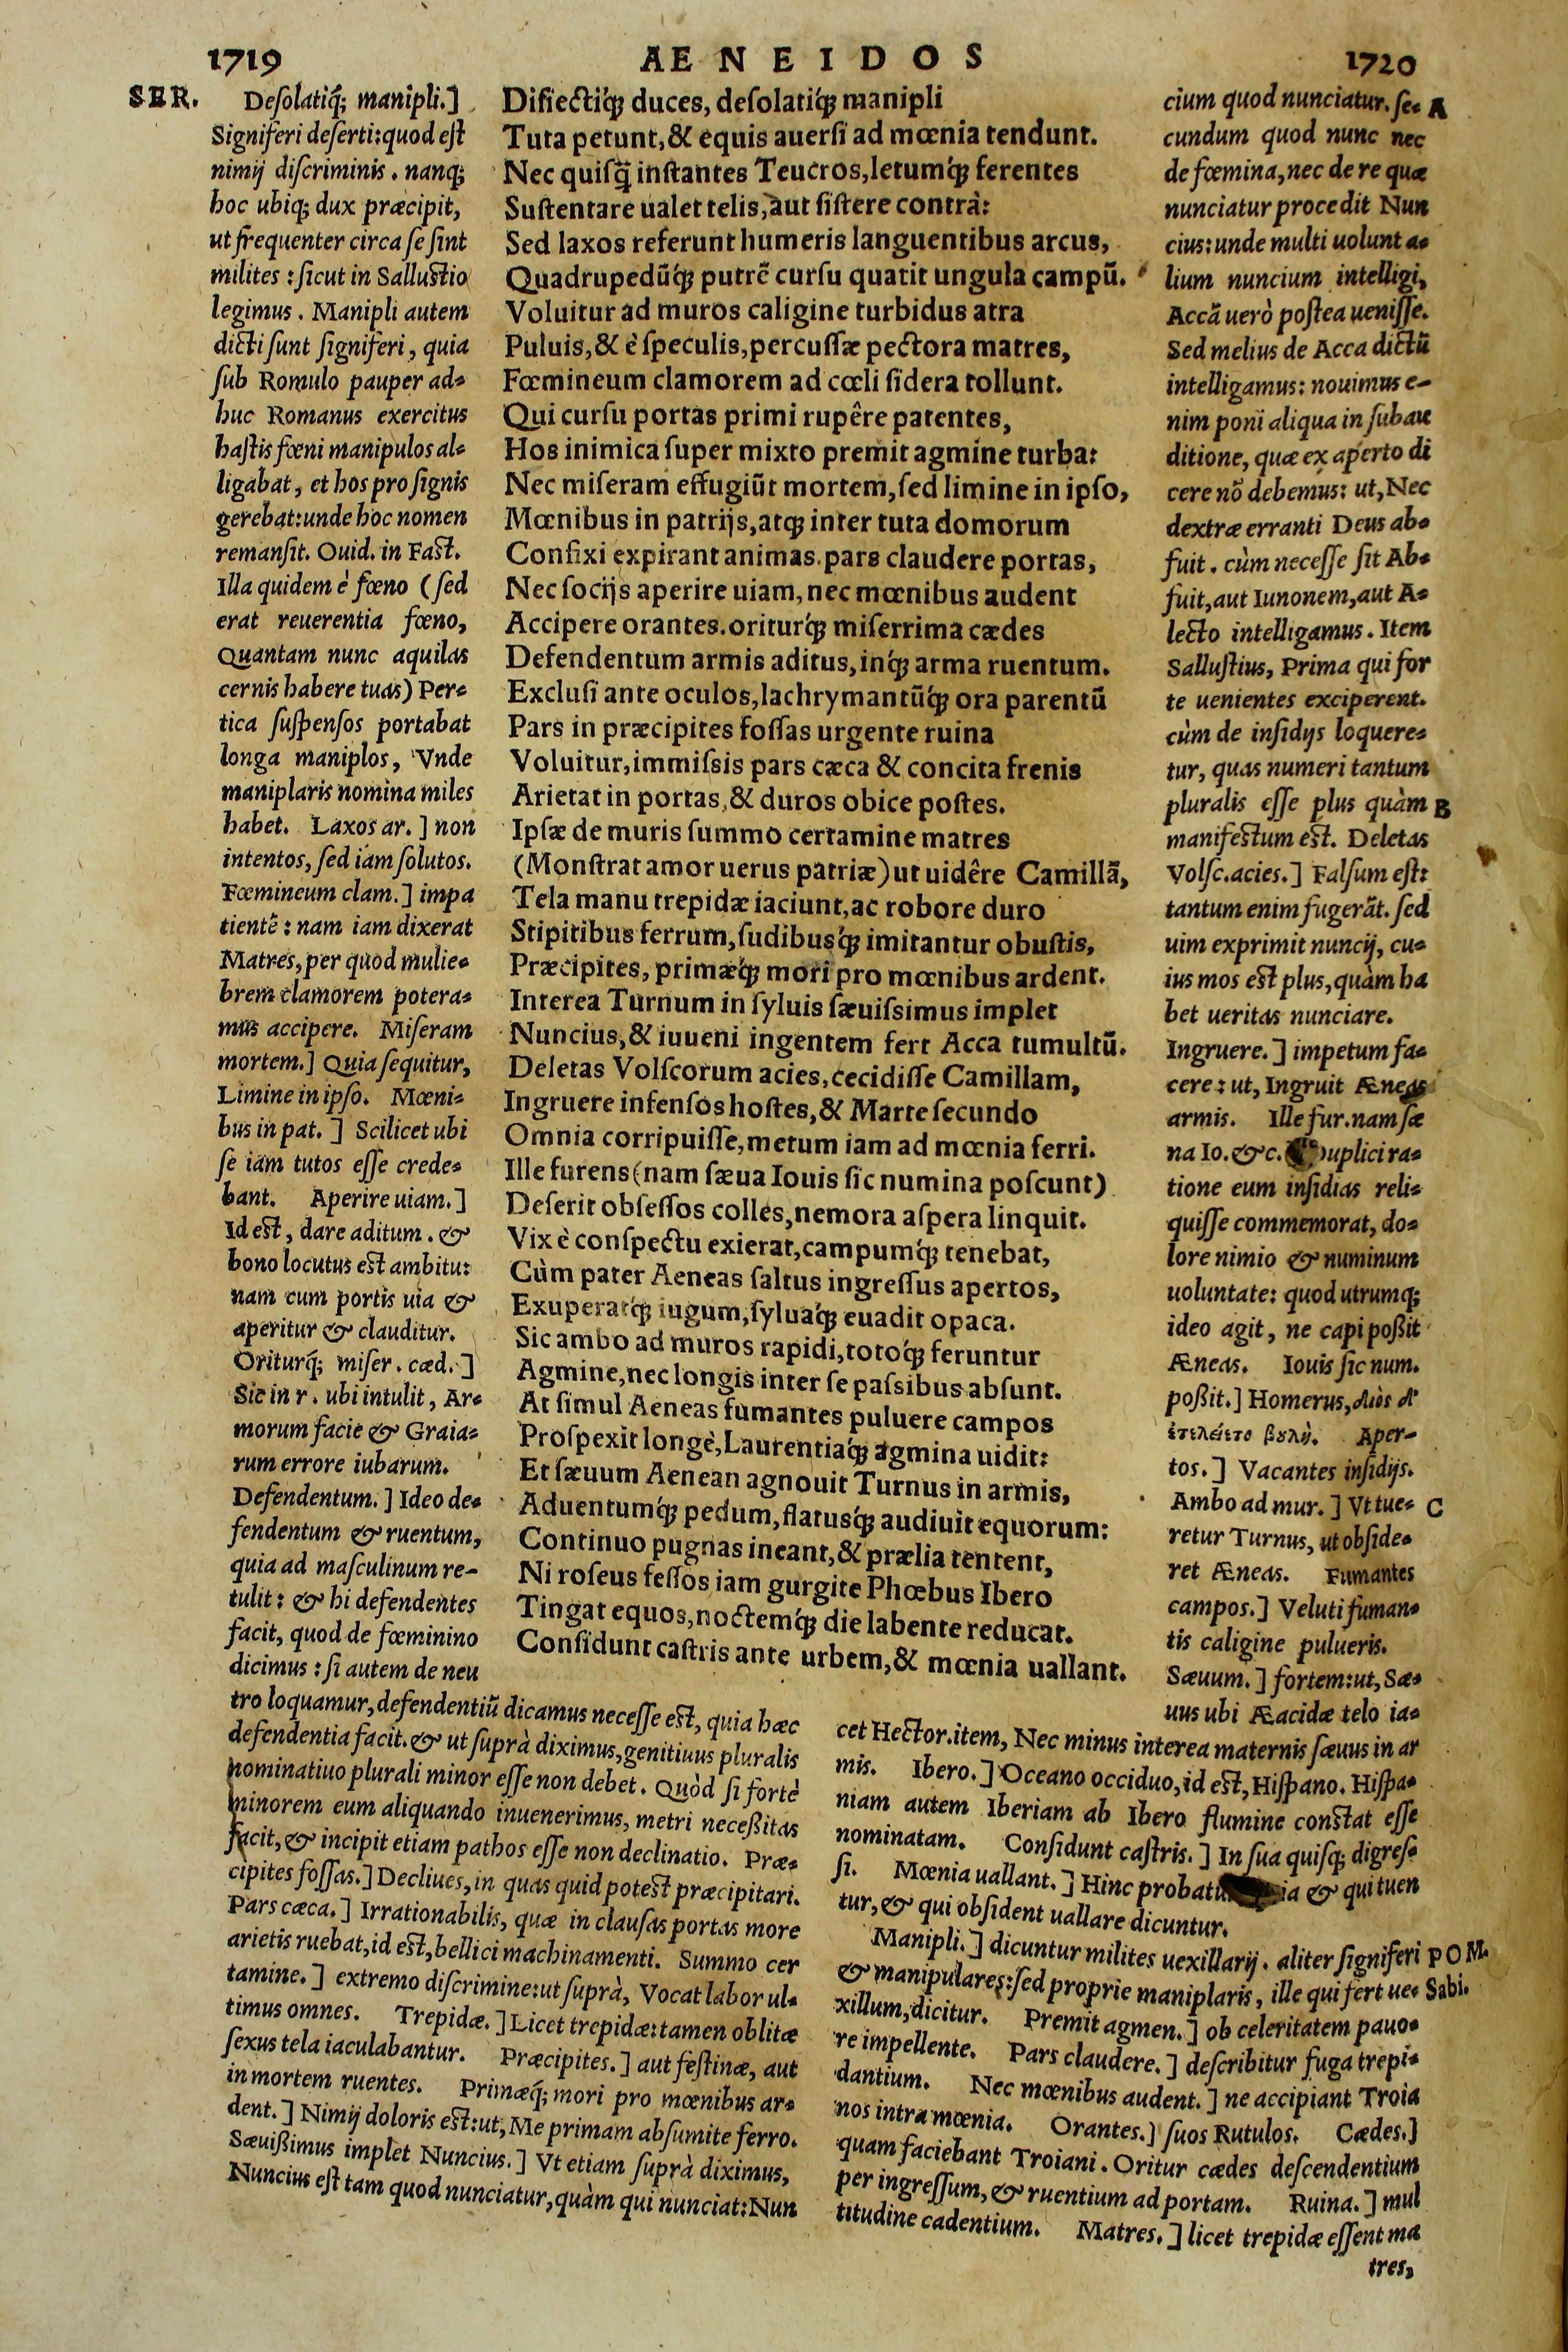 1719
AENEIDOS
1720
SER.
Deſolatiq́; manipli.]
Signiferi deſerti: quod eſt
nimij diſcriminis. nanq;
hoc ubiq; dux præcipit,
ut frequenter circa ſe ſint
milites: ſicut in Salluſtio
legimus. Manipli autem
dicti ſunt ſigniferi, quia
ſub Romulo pauper ad-
huc Romanus exercitus
haſtis fœni manipulos al-
ligabat, et hos pro ſignis
gerebat: unde hoc nomen
remanſit. Ouid. in Faſt.
Illa quidem è fœno (ſed
erat reuerentia fœno,
Quantam nunc aquilas
cernis habere tuas) Per-
tica ſuſpenſos portabat
longa maniplos, Vnde
maniplaris nomina miles
habet. Laxos ar.] non
intentos, ſed iam ſolutos.
Fœmineum clam.] impa
tientē: nam iam dixerat
Matres, per quod mulie-
brem clamorem potera-
mus accipere. Miſeram
mortem.] Quia ſequitur,
Limine in ipſo. Mœni-
bus in pat.] Scilicet ubi
ſe iam tutos eſſe crede-
bant. Aperire uiam.]
Id eſt, dare aditum. &
bono locutus eſt ambitu:
nam cum portis uia &
aperitur & clauditur.
Oriturq́; miſer. cæd.]
Sic in r. ubi intulit, Ar-
morum facie & Graia-
rum errore iubarum.
Defendentum.] Ideo de-
fendentum & ruentum,
quia ad maſculinum re-
tulit: & hi defendentes
facit, quod de fœminino
dicimus: ſi autem de neu
tro loquamur, defendentiū dicamus neceſſe eſt, quia hæc
defendentia facit. & ut ſuprà diximus, genitiuus pluralis
nominatiuo plurali minor eſſe non debet. Quòd ſi fortè
minorem eum aliquando inuenerimus, metri neceßitas
facit, & incipit etiam pathos eſſe non declinatio. Præ-
cipites foſſas.] Decliues, in quas quid poteſt præcipitari.
Pars cæca.] Irrationabilis, quæ in clauſas portas more
arietis ruebat, id eſt, bellici machinamenti. Summo cer
tamine.] extremo diſcrimine: ut ſuprà, Vocat labor ul-
timus omnes. Trepidæ.] Licet trepidæ: tamen oblitæ
ſexus tela iaculabantur. Præcipites.] aut feſtinæ, aut
in mortem ruentes. Primæq́; mori pro mœnibus ar-
dent.] Nimij doloris eſt: ut, Me primam abſumite ferro.
Sæuißimus implet Nuncius.] Vt etiam ſuprà diximus,
Nuncius eſt tam quod nunciatur, quàm qui nunciat: Nun
Diſiectiq́; duces, deſolatiq́; manipli
Tuta petunt, & equis auerſi ad mœnia tendunt.
Nec quiſq̃ inſtantes Teucros, letumq́; ferentes
Suſtentare ualet telis, aut ſiſtere contrà:
Sed laxos referunt humeris languentibus arcus,
Quadrupedūq́; putrē curſu quatit ungula campū.
Voluitur ad muros caligine turbidus atra
Puluis, & è ſpeculis, percuſſæ pectora matres,
Fœmineum clamorem ad cœli ſidera tollunt.
Qui curſu portas primi rupêre patentes,
Hos inimica ſuper mixto premit agmine turba:
Nec miſeram effugiūt mortem, ſed limine in ipſo,
Mœnibus in patrijs, atq; inter tuta domorum
Confixi expirant animas. pars claudere portas,
Nec ſocijs aperire uiam, nec mœnibus audent
Accipere orantes. oriturq́; miſerrima cædes
Defendentum armis aditus, inq́; arma ruentum.
Excluſi ante oculos, lachrymantūq́; ora parentū
Pars in præcipites foſſas urgente ruina
Voluitur, immiſsis pars cæca & concita frenis
Arietat in portas, & duros obice poſtes.
Ipſæ de muris ſummo certamine matres
(Monſtrat amor uerus patriæ) ut uidêre Camillā,
Tela manu trepidæ iaciunt, ac robore duro
Stipitibus ferrum, ſudibusq́; imitantur obuſtis,
Præcipites, primæq́; mori pro mœnibus ardent.
Interea Turnum in ſyluis ſæuiſsimus implet
Nuncius, & iuueni ingentem fert Acca tumultū.
Deletas Volſcorum acies, cecidiſſe Camillam,
Ingruere infenſos hoſtes, & Marte ſecundo
Omnia corripuiſſe, metum iam ad mœnia ferri.
Ille furens (nam ſæua Iouis ſic numina poſcunt)
Deſerit obſeſſos colles, nemora aſpera linquit.
Vix è conſpectu exierat, campumq́; tenebat,
Cùm pater Aeneas ſaltus ingreſſus apertos,
Exuperatq́; iugum, ſyluaq́; euadit opaca.
Sic ambo ad muros rapidi, totoq́; feruntur
Agmine, nec longis inter ſe paſsibus abſunt.
At ſimul Aeneas fumantes puluere campos
Proſpexit longè, Laurentiaq́; agmina uidit:
Et ſæuum Aenean agnouit Turnus in armis,
Aduentumq́; pedum, flatusq́; audiuit equorum:
Continuo pugnas ineant, & prælia tentent,
Ni roſeus feſſos iam gurgite Phœbus Ibero
Tingat equos, noctemq́; die labente reducat.
Conſidunt caſtris ante urbem, & mœnia uallant.
cium quod nunciatur. ſe- A
cundum quod nunc nec
de fœmina, nec de re quæ
nunciatur procedit Nun
cius: unde multi uolunt a-
lium nuncium intelligi,
Accā uerò poſtea ueniſſe.
Sed melius de Acca dictū
intelligamus: nouimus e-
nim poni aliqua in ſubau
ditione, quæ ex aperto di
cere nō debemus: ut, Nec
dextræ erranti Deus ab-
fuit. cùm neceſſe ſit Ab-
fuit, aut Iunonem, aut A-
lecto intelligamus. Item
Salluſtius, Prima qui for
te uenientes exciperent.
cùm de inſidijs loquere-
tur, quas numeri tantum
pluralis eſſe plus quàm B
manifeſtum eſt. Deletas
Volſc. acies.] Falſum eſt:
tantum enim fugerāt. ſed
uim exprimit nuncij, cu-
ius mos eſt plus, quàm ha
bet ueritas nunciare.
Ingruere.] impetum fa-
cere: ut, Ingruit Æneas
armis. Ille fur. nam ſæ
na Io. &c. uplici ra-
tione eum inſidias reli-
quiſſe commemorat, do-
lore nimio & numinum
uoluntate: quod utrumq;
ideo agit, ne capi poßit
Æneas. Iouis ſic num.
poßit.] Homerus, διὸς δ'
ἐτελείετο βουλή. Aper-
tos.] Vacantes inſidijs.
Ambo ad mur.] Vt tue- C
retur Turnus, ut obſide-
ret Æneas. Fumantes
campos.] Veluti fuman-
tis caligine pulueris.
Sæuum.] fortem: ut, Sæ-
uus ubi Æacidæ telo ia-
cet Hector. item, Nec minus interea maternis ſæuus in ar
mis. Ibero.] Oceano occiduo, id eſt, Hiſpano. Hiſpa-
niam autem Iberiam ab Ibero flumine conſtat eſſe
nominatam. Conſidunt caſtris.] In ſua quiſq; digreſ-
ſi. Mœnia uallant.] Hinc probatu ia & qui tuen
tur, & qui obſident uallare dicuntur.
Manipli.] dicuntur milites uexillarij. aliter ſigniferi POM.
& manipulares: ſed proprie maniplaris, ille qui fert ue- Sabi.
xillum, dicitur. Premit agmen.] ob celeritatem pauo-
re impellente. Pars claudere.] deſcribitur fuga trepi-
dantium. Nec mœnibus audent.] ne accipiant Troia
nos intra mœnia. Orantes.] ſuos Rutulos. Cædes.]
quam faciebant Troiani. Oritur cædes deſcendentium
per ingreſſum, & ruentium ad portam. Ruina.] mul
titudine cadentium. Matres.] licet trepidæ eſſent ma
tres,